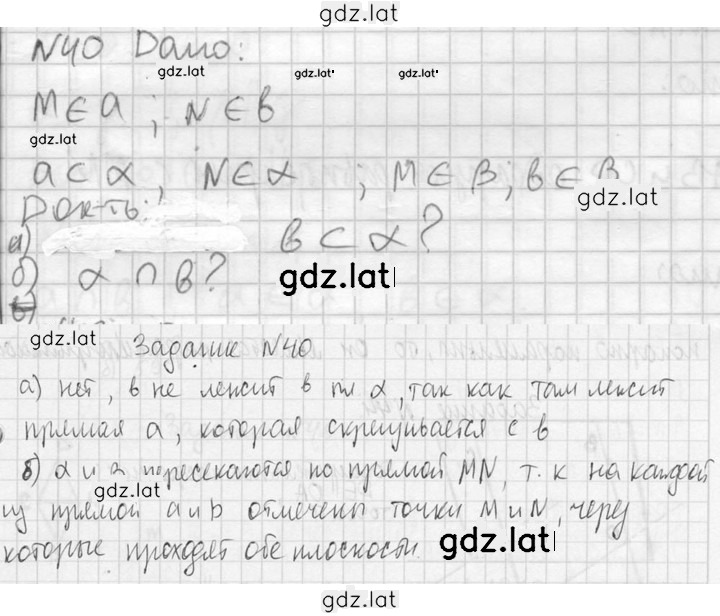 gdz.lat
N40 Дано:
gdz.lat gdz.lat gdz.lat gdz.lat
M∈a ; N∈b
gdz.lat
a⊂α, N∈α ; M∈β; b∈β
gdz.lat
Док-ть:
а) b⊂α?
б) α∩b?
gdz.lat
gdz.lat
Задание N40
а) нет, в не лежит в пл α, так как там лежит
прямая a, которая скрещивается с b
б) α и a пересекаются по прямой MN, т.к на каждой
gdz.lat
из прямой a и b отмечены точки M и N, через
которые проходят обе плоскости
gdz.lat
gdz.lat